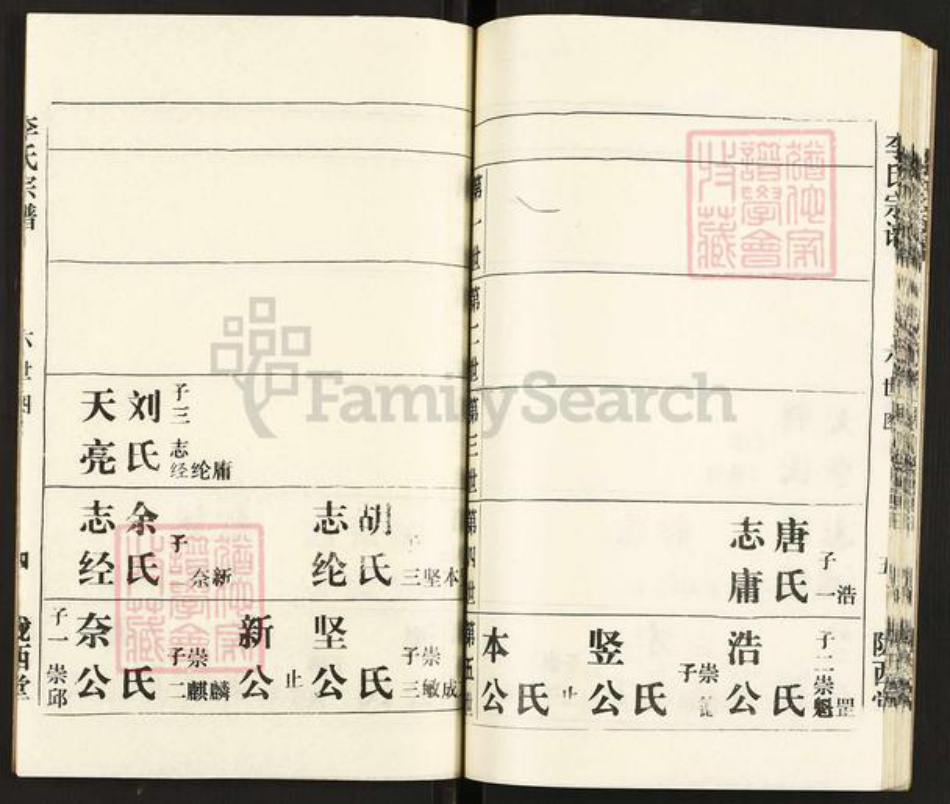 李氏宗谱
六世图
五
陇西堂
第一世
第二世
第三世
第四世
第五世
唐氏
志庸
子一
浩
浩公
氏
子二
崇
魁罡
竖公
氏
子
崇
本公
氏
止
李氏宗谱
六世
四
陇西堂
刘氏
天亮
子三
志
经纶庸
胡氏
志纶
三
坚本
余氏
志经
子
奈新
坚公
氏
子三
崇
敏成
新公
止
奈公
氏
子二
崇
麒麟
子一
崇邱
FamilySearch